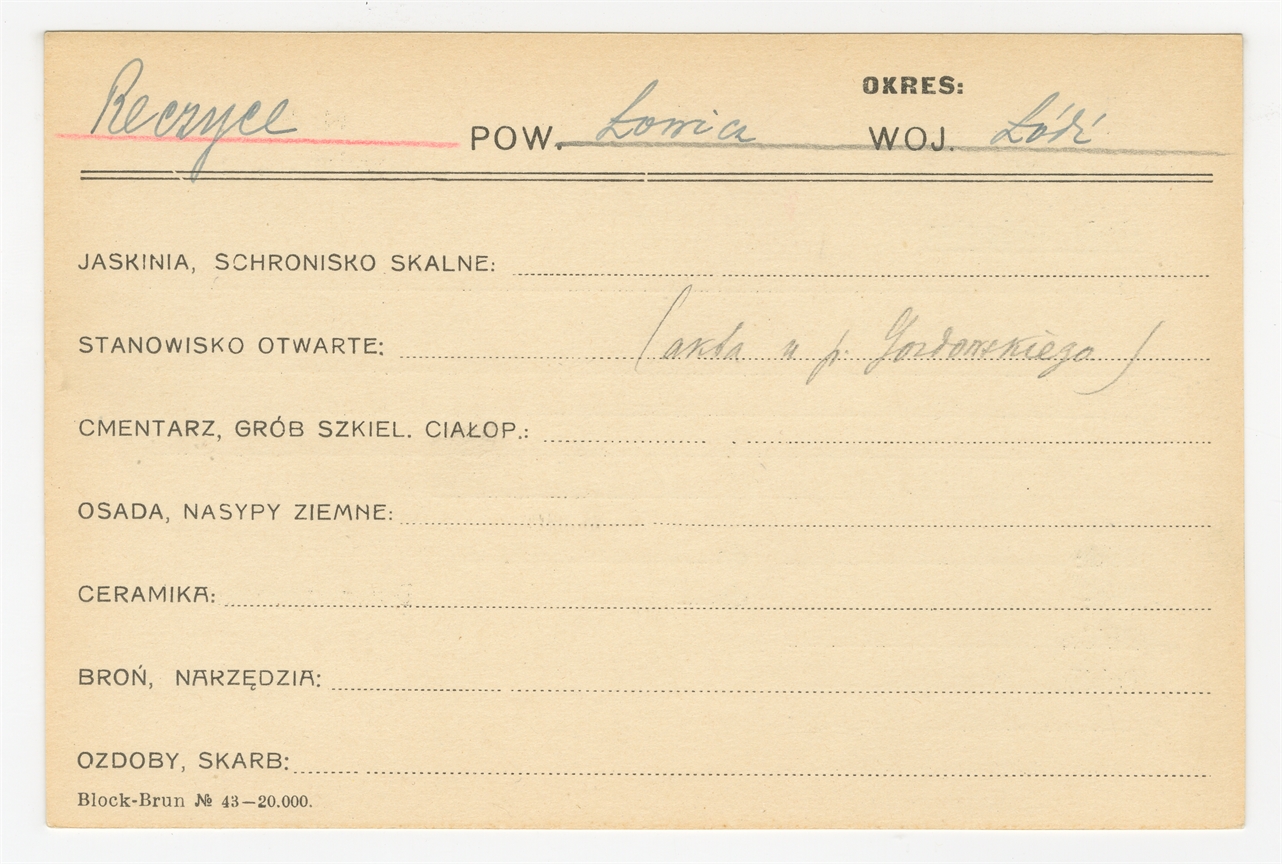 OKRES:
Reczyce POW. Łowicz WOJ. Łódź
JASKINIA, SCHRONISKO SKALNE:
STANOWISKO OTWARTE: (akta u p. Gozdowskiego)
CMENTARZ, GRÓB SZKIEL. CIAŁOP.:
OSADA, NASYPY ZIEMNE:
CERAMIKA:
BROŃ, NARZĘDZIA:
OZDOBY, SKARB:
Block-Brun № 43—20.000.